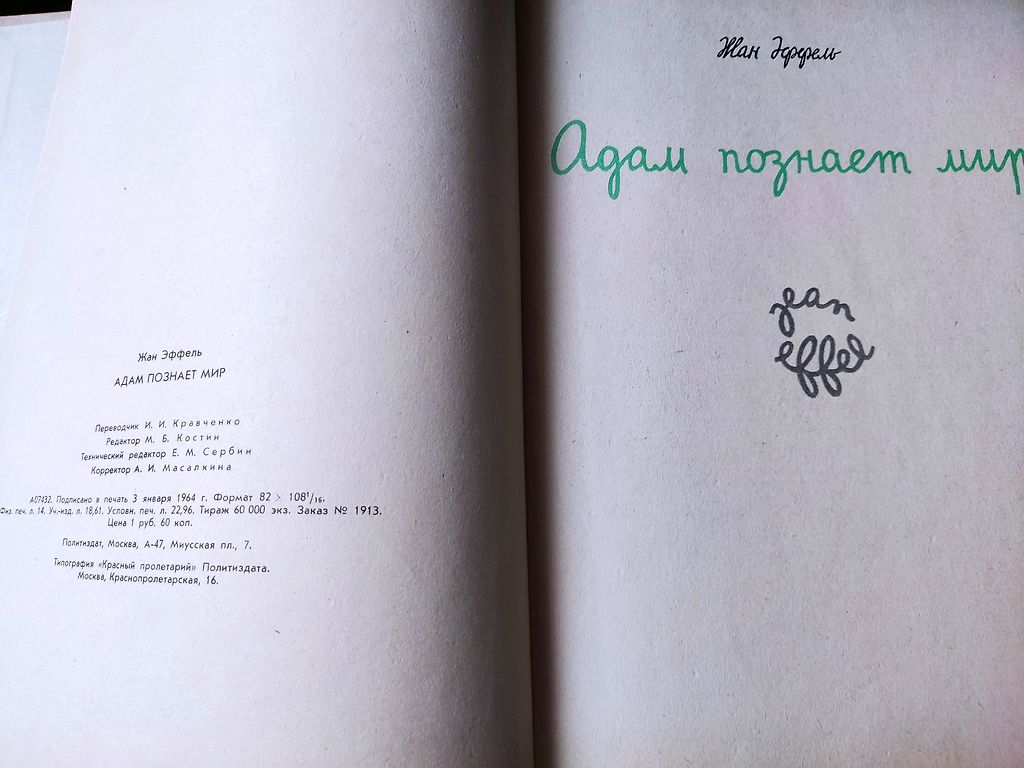 Жан Эффель
АДАМ ПОЗНАЕТ МИР
Переводчик И. И. Кравченко
Редактор М. Б. Костин
Технический редактор Е. М. Сербин
Корректор А. И. Масалкина
А07432. Подписано в печать 3 января 1964 г. Формат 82 × 108¹/₁₆.
Физ. печ. л. 14. Уч.-изд. л. 18,61. Условн. печ. л. 22,96. Тираж 60 000 экз. Заказ № 1913.
Цена 1 руб. 60 коп.
Политиздат, Москва, А-47, Миусская пл., 7.
Типография «Красный пролетарий» Политиздата.
Москва, Краснопролетарская, 16.
Жан Эффель
Адам познает мир
jean
effel